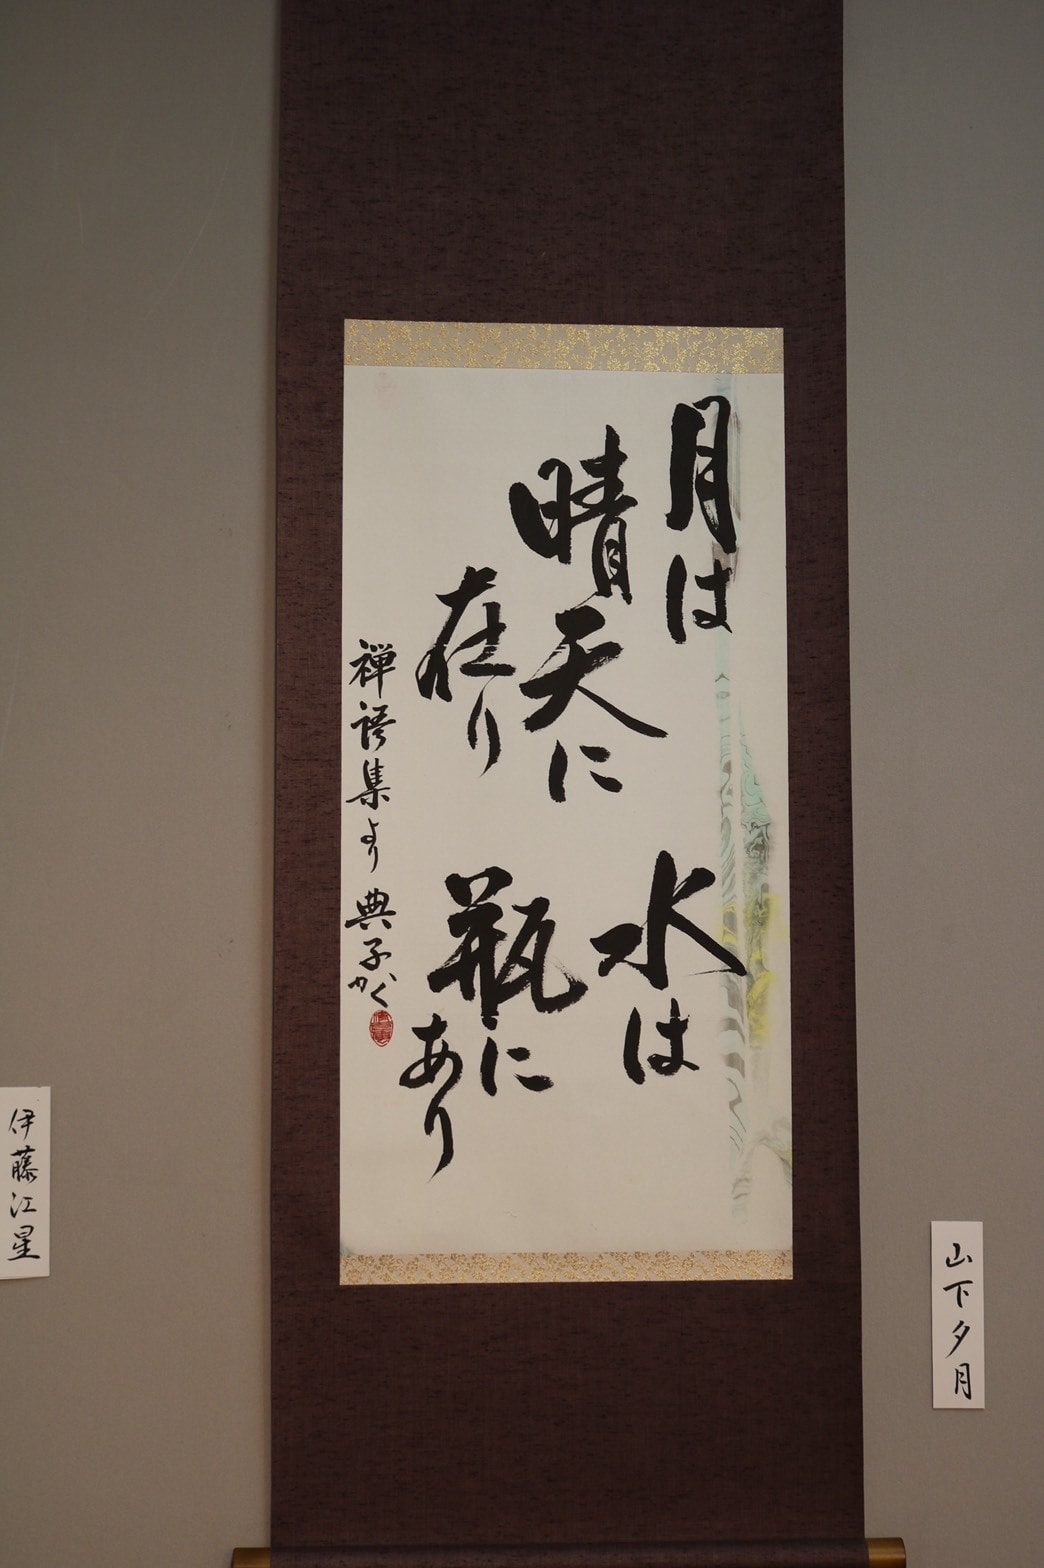 月は
晴天に
在り
水は
瓶に
あり
禅語集より 典子かく
山下夕月
伊藤江星